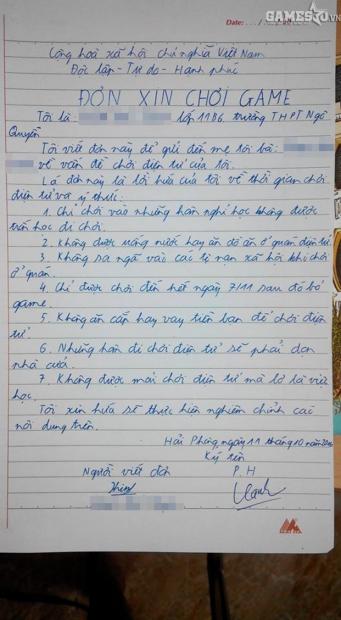 GAMESTV.VN
Date: ..../..../....
Cộng hoà xã hội chủ nghĩa Việt Nam
Độc lập - Tự do - Hạnh phúc
ĐƠN XIN CHƠI GAME
Tôi là lớp 11B6, trường THPT Ngô
Quyền
Tôi viết đơn này để gửi đến mẹ tôi bà:
về vấn đề chơi điện tử của tôi.
Lá đơn này là lời hứa của tôi về thời gian chơi
điện tử và ý thức:
1. Chỉ chơi vào những hôm nghỉ học không được
trốn học đi chơi.
2. Không được uống nước hay ăn đồ ăn ở quán điện tử.
3. Không sa ngã vào các tệ nạn xã hội khi chơi
ở quán.
4. Chỉ được chơi đến hết ngày 7/11 sau đó bỏ
game.
5. Không ăn cắp hay vay tiền bạn để chơi điện
tử.
6. Những hôm đi chơi điện tử sẽ phải dọn
nhà cửa.
7. Không được mải chơi điện tử mà lơ là việc
học.
Tôi xin hứa sẽ thực hiện nghiêm chỉnh các
nội dung trên.
Hải Phòng, ngày 11 tháng 10 năm
Ký tên
Người viết đơn P.H